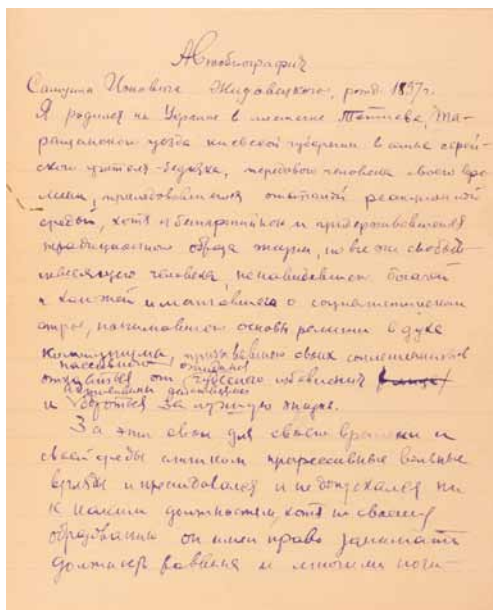 Автобиография
Самуила Ионовича Жидовецкого, рожд. 1897 г.
Я родился на Украине в местечке Тетиеве, Та-
ращанского уезда киевской губернии в семье еврей-
ского учителя-бедняка, передового человека своего вре-
мени, преследовавшегося отсталой реакционной
средой, хотя и беспартийном и придерживавшегося
традиционного образа жизни, но все же свободо-
мыслящего человека, ненавидевшего богачей
и ханжей и мечтавшего о социалистическом
строе, понимавшего основы религии в духе
коммунизма, призывавшего своих соплеменников
пассивного ожидания
отказаться от чудесного избавления
активными действиями
и бороться за лучшую жизнь.
За эти свои для своего времени и
своей среды слишком прогрессивные вольные
взгляды и преследовался и не допускался ни
к каким должностям, хотя по своему
образованию он имел право занимать
должность раввина и многими